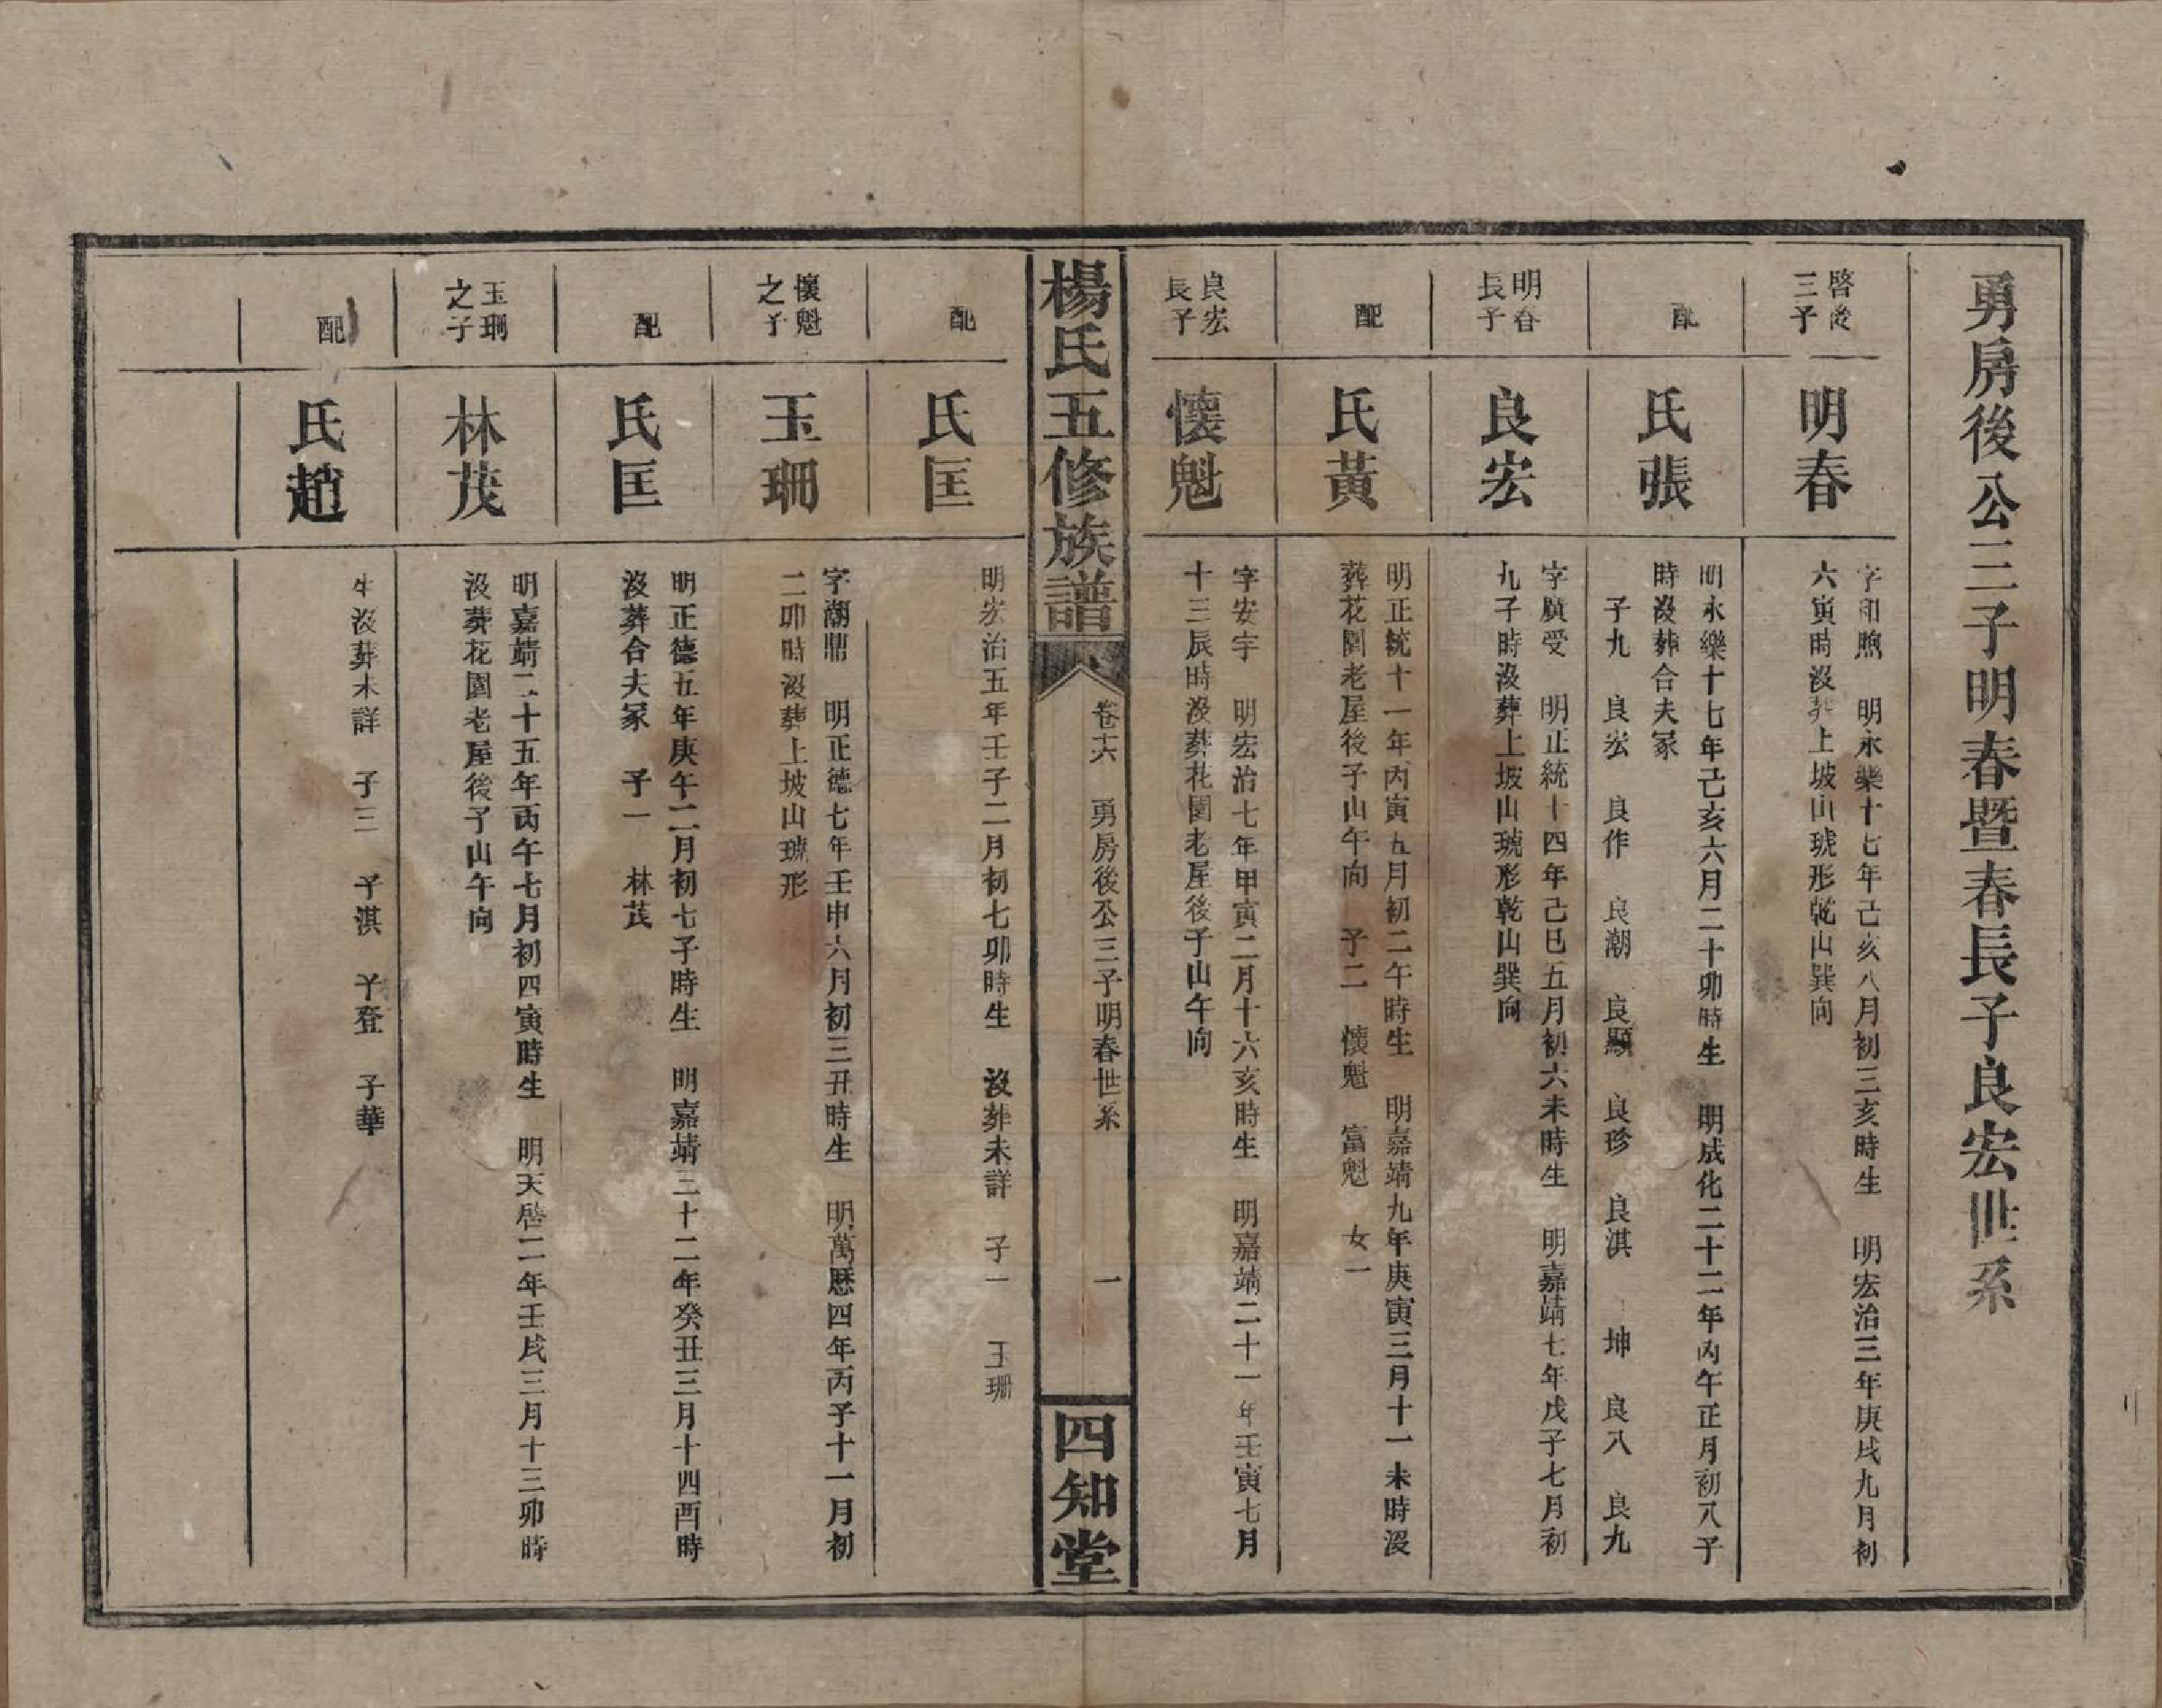 勇房後公三子明春暨春長子良宏世系
啓後
三子
明春
字和煦　明永樂十七年己亥八月初三亥時生　明宏治三年庚戌九月初
六寅時沒葬上坡山琥形乾山巽向
配
氏張
明永樂十七年己亥六月二十卯時生　明成化二十二年丙午正月初八子
時沒葬合夫冢
子九　良宏　良作　良潮　良顯　良珍　良淇　坤　良八　良九
明春
長子
良宏
字廣受　明正統十四年己巳五月初六未時生　明嘉靖七年戊子七月初
九子時沒葬上坡山琥形乾山巽向
配
氏黃
明正統十一年丙寅五月初二午時生　明嘉靖九年庚寅三月十一未時沒
葬花園老屋後子山午向　子二　懷魁　富魁　女一
良宏
長子
懷魁
字安宇　明宏治七年甲寅二月十六亥時生　明嘉靖二十一年壬寅七月
十三辰時沒葬花園老屋後子山午向
楊氏五修族譜
卷十六　勇房後公三子明春世系　一
四知堂
配
氏匡
明宏治五年壬子二月初七卯時生　沒葬未詳　子一　玉珊
懷魁
之子
玉珊
字潮鼎　明正德七年壬申六月初三丑時生　明萬歷四年丙子十一月初
二卯時沒葬上坡山琥形
配
氏匡
明正德五年庚午二月初七子時生　明嘉靖三十二年癸丑三月十四酉時
沒葬合夫冢　子一　林茂
玉珊
之子
林茂
明嘉靖二十五年丙午七月初四寅時生　明天啓二年壬戌三月十三卯時
沒葬花園老屋後子山午向
配
氏趙
生沒葬未詳　子三　子淇　子登　子華